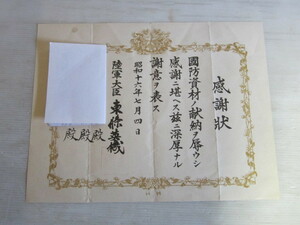 感謝狀
國防資材ノ献納ヲ辱ウシ
感謝ニ堪ヘス茲ニ深厚ナル
謝意ヲ表ス
昭和十六年七月四日
陸軍大臣 東條英機
殿
殿
殿